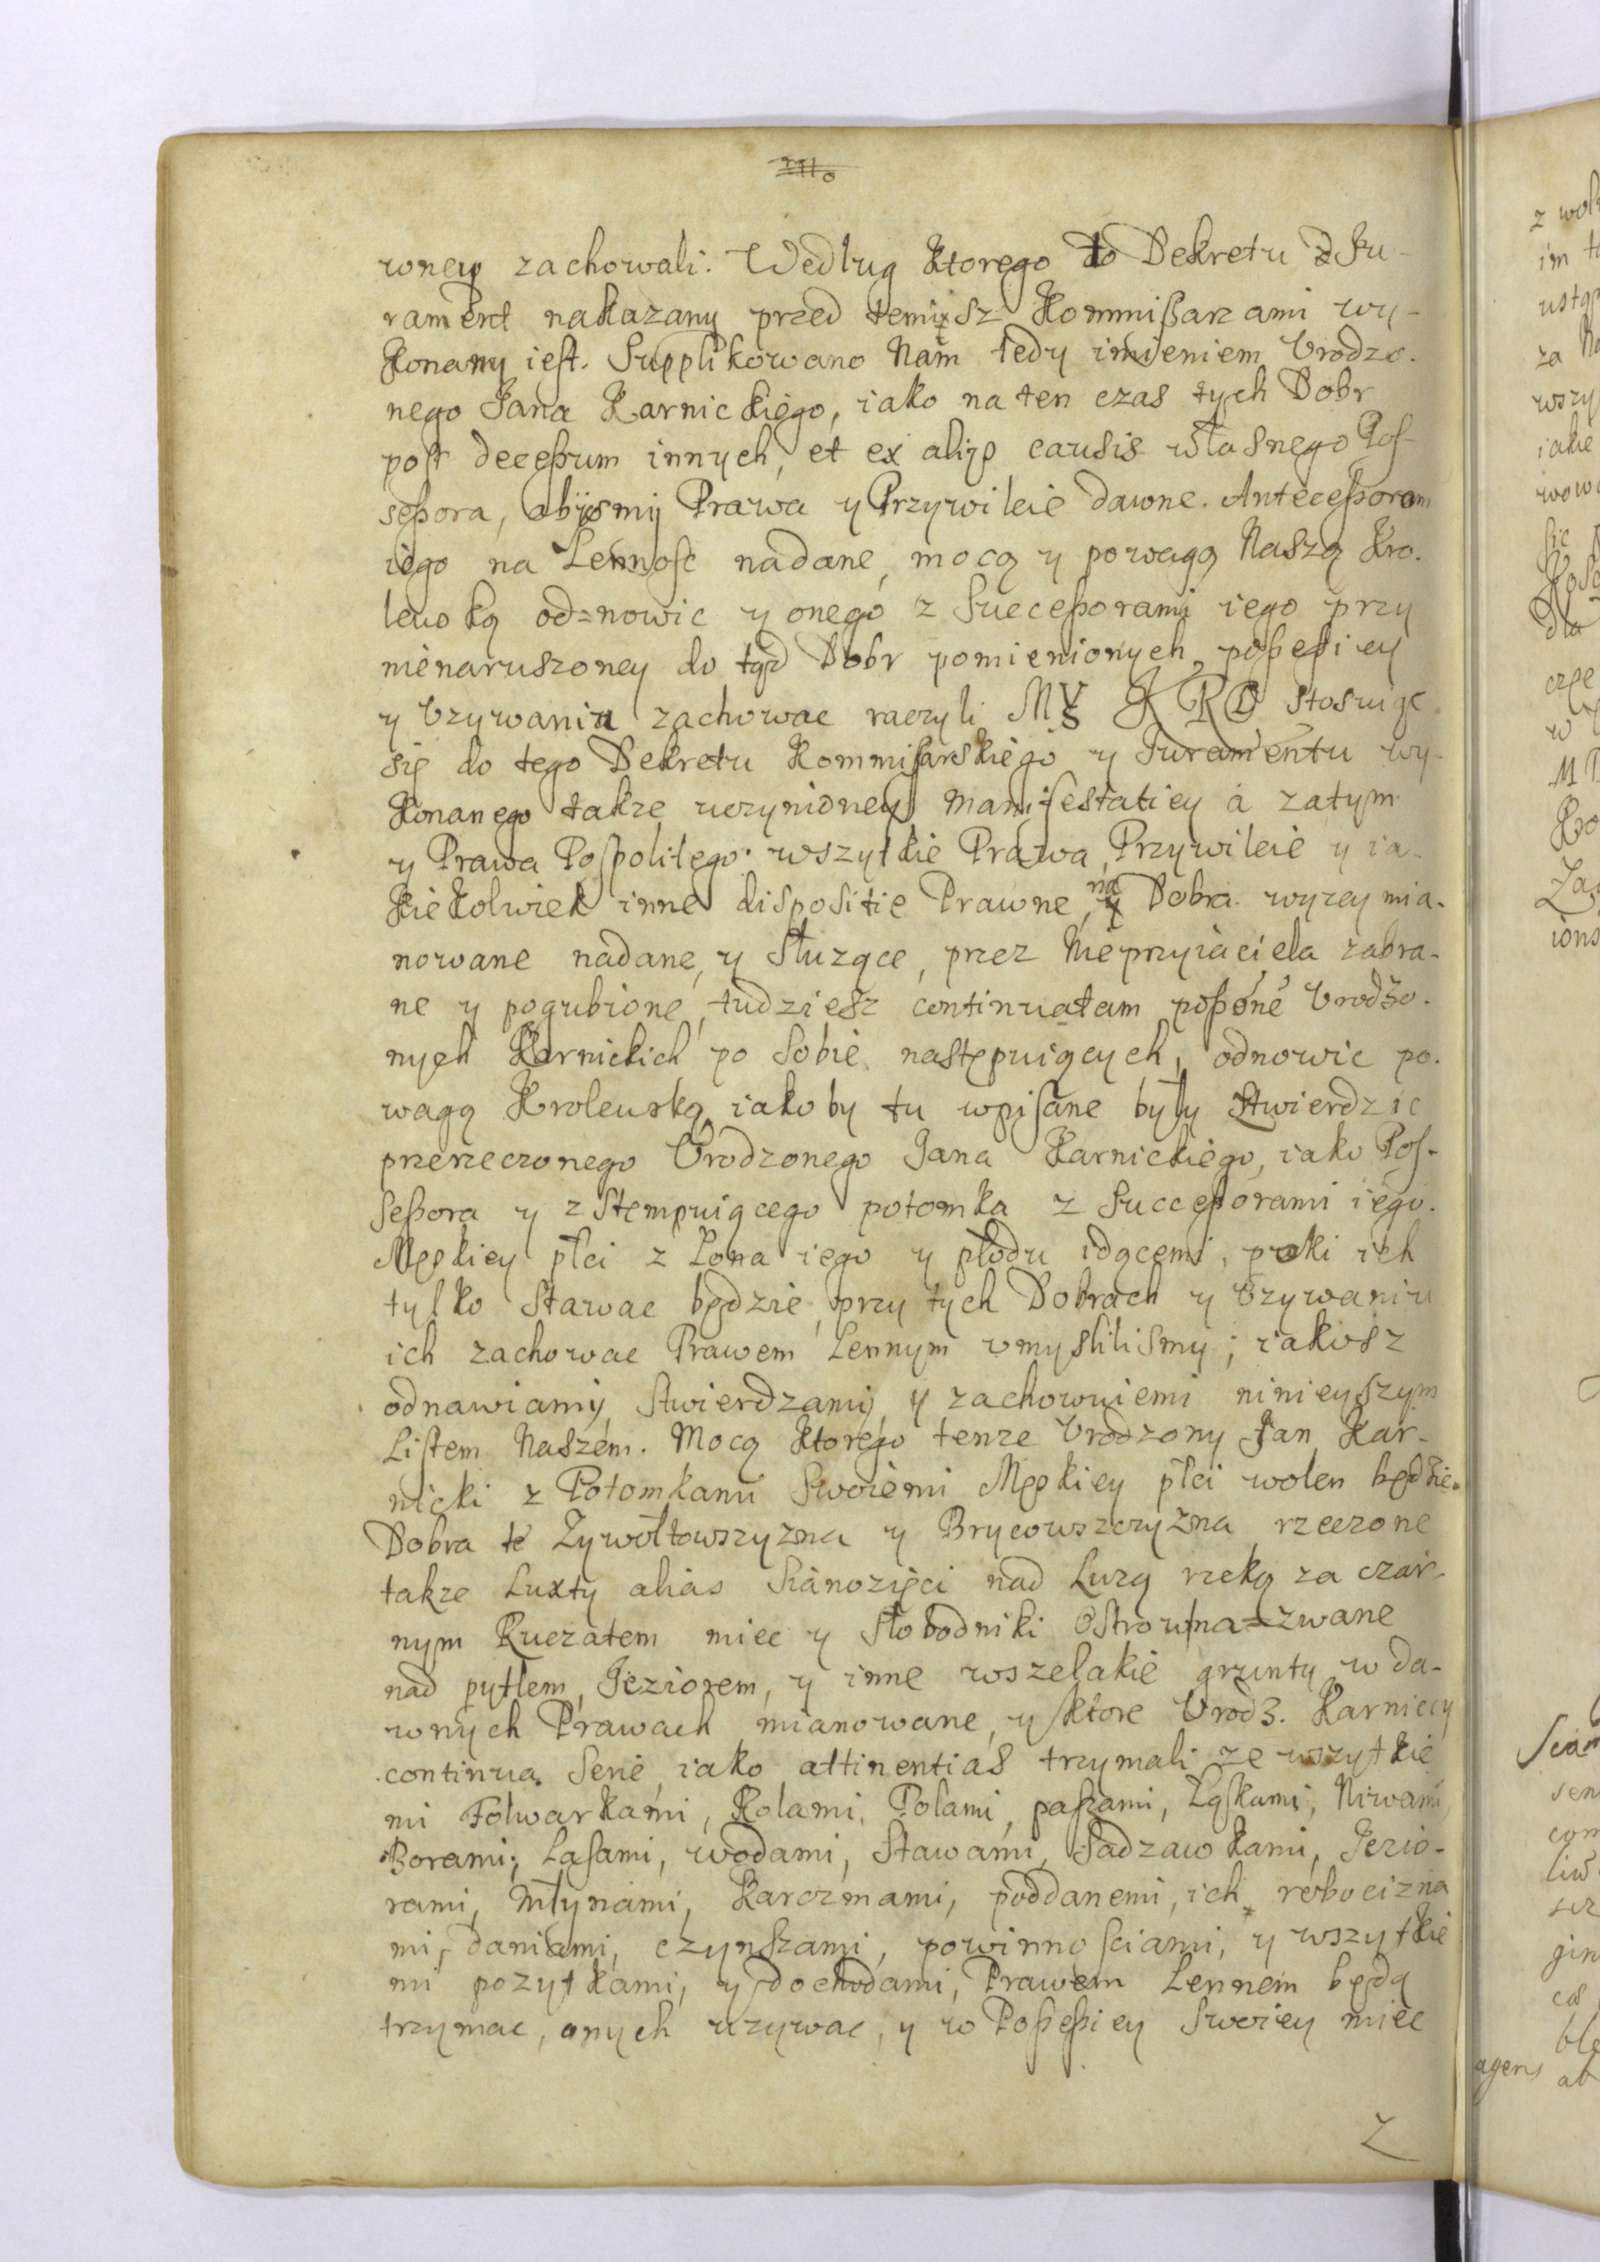 wney zachowali. Według ktorego to Dekretu Ju-
rament nakazany przed temisz Kommißarzami wy-
konany iest. Supplikowano Nam tedy imieniem Vrodzo-
nego Jana Karnickiego, iako na ten czas tych Dobr
post deceßum innych, et ex alijs causis własnego Pos-
seßora, abysmy Prawa y Przywileie dawne. Anteceßorom
iego na Lennosc nadane, mocą y powagą Naszą Kro-
lewską od=nowic y onego z Succeßorami iego przy
nienaruszoney do tąd Dobr pomienionych poßeßiey
y Vzywaniu zachowac raczyli My K R D stosuiąc
się do tego Dekretu Kommißarskiego y Juramentu wy-
konanego takze uczynioney Manifestatiey a zatym
y Prawa Pospolitego. wszytkie Prawa, Przywileie y ia-
kiekolwiek inne dispositie Prawne, na Dobra wyzey mia-
nowane nadane, y Słuzące, przez Nieprzyiaciela zabra-
ne y pogubione, tudziesz continuatam poßone Vrodzo-
nych Karnickich po Sobie następuiących, odnowic po-
wagą Krolewską, iako by tu wpisane były Stwierdzic
przerzeczonego Vrodzonego Jana Karnickiego, iako Pos-
seßora y zstempuiącego potomka z Succeßorami iego.
Męskiey płci z Lona iego y płodu idącemi, poki ich
tylko Stawac będzie, przy tych Dobrach y Vzywaniu
ich zachowac Prawem Lennym vmyslilismy; iakosz
odnawiamy, Stwierdzamy, y zachowuiemi ninieyszym
Listem Naszem. Mocą ktorego tenze Vrodzony Jan Kar-
nicki z Potomkami Swoiemi Męskiey płci wolen będzie
Dobra te Zywołtowszyzna y Brycowszczyzna rzeczone
takze Luxty alias Sianozięci nad Luzą rzeką za czar-
nym Ruczatem miec y Słobodniki Ostrow na=zwane
nad pytlem, Jeziorem, y inne wszelakie grunty w da-
wnych Prawach mianowane, y ktore Vrodz. Karniccy
continua Serie, iako attinentias trzymali ze wszytkie
mi Folwarkami, Rolami, Polami, paszami, Ląskami, Niwami,
Borami; Lasami, wodami, Stawami, Sadzawkami, Jezio-
rami, Młynami, Karczmami, poddanemi, ich robocizna
mi, daniami, czynszami, powinnosciami, y wszytkie
mi pozytkami, y dochodami, Prawem Lennem będą
trzymac, onych uzywac, y w Poßeßiey Swoiey miec
Z